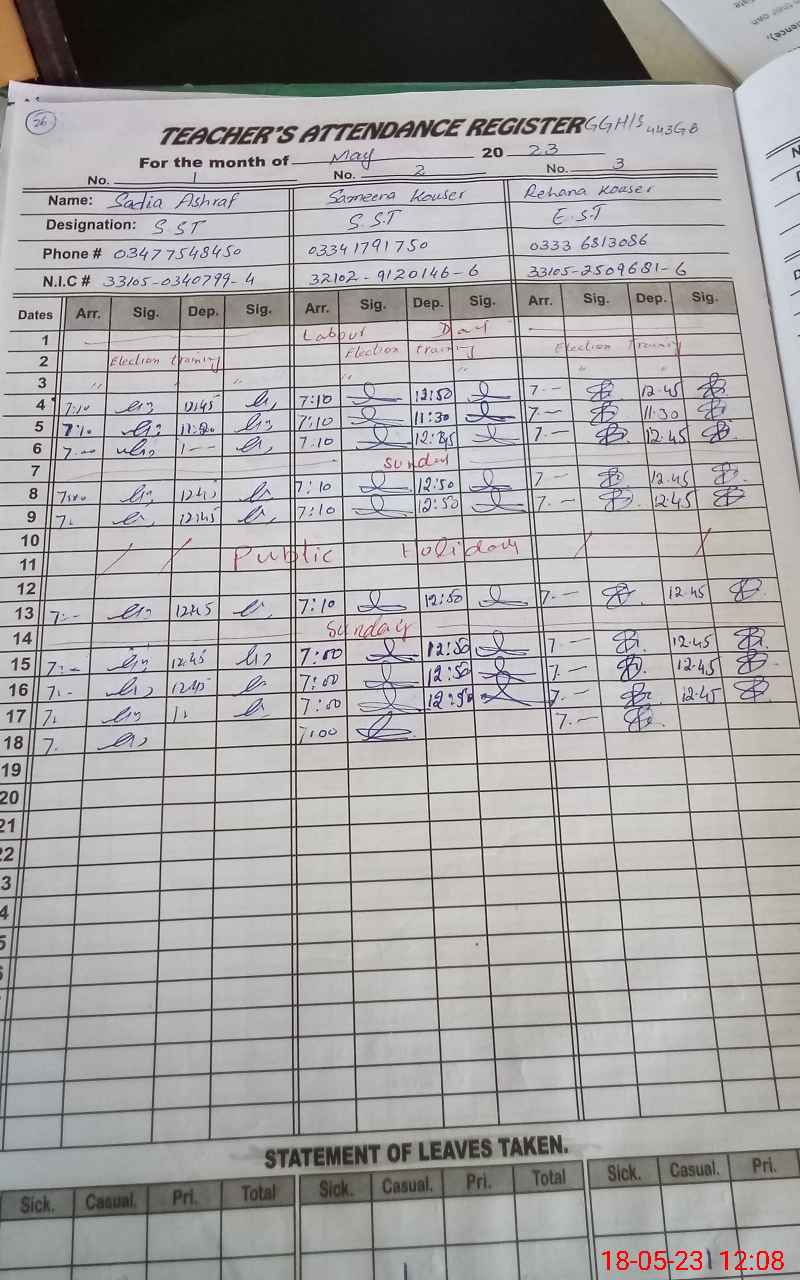 26
TEACHER'S ATTENDANCE REGISTER GGH/S 443GB
For the month of May 20 23
No. 1 No. 2 No. 3
Name: Sadia Ashraf Sameera Kouser Rehana Kouser
Designation: S.ST S.S.T E.S.T
Phone # 03477548450 03341791750 0333 6813086
N.I.C # 33105-0340799-4 32102-9120146-6 33105-2509681-6
Dates Arr. Sig. Dep. Sig. Arr. Sig. Dep. Sig. Arr. Sig. Dep. Sig.
1 Labour Day
2 Election training Election training Election Training
3 " " " " " "
4 7:10 12:45 7:10 12:50 7.— 12.45
5 7:10 7:10 11:30 7.— 11.30
6 7.— 1— 7.10 12:45 7.— 12.45
7 Sunday
8 7:10 12:50 7.— 12.45
9 7. 12:45 7:10 12:50 7.— 12.45
10
11 Public Holiday
12
13 7:— 12:45 7:10 12:50 7.— 12.45
14 Sunday
15 7:— 12.45 7:00 12:50 7.— 12.45
16 7:- 12.45 7:00 12:50 7.— 12.45
17 7. 1. 7:00 12:50 7.— 12.45
18 7. 7:00 7.—
19
20
21
22
3
4
5
STATEMENT OF LEAVES TAKEN.
Sick. Casual. Pri. Total Sick. Casual. Pri. Total Sick. Casual. Pri.
18-05-23 12:08